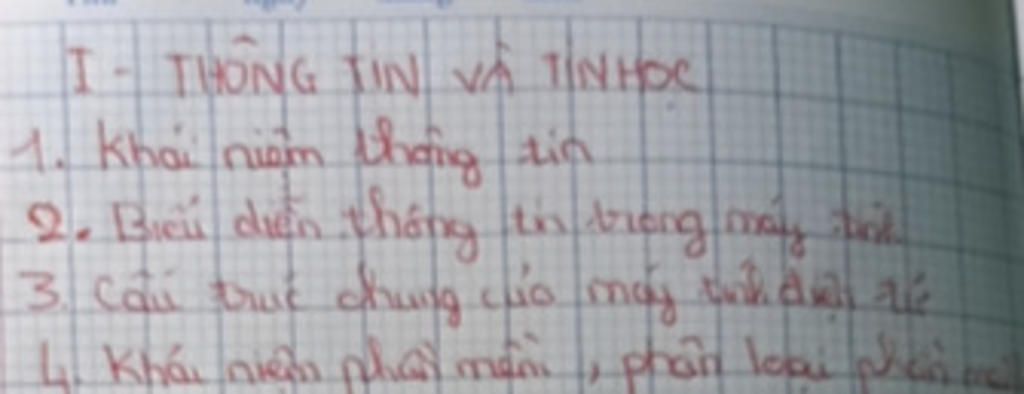 I - THÔNG TIN VÀ TIN HỌC
1. Khái niệm thông tin
2. Biểu diễn thông tin trong máy tính
3. Cấu trúc chung của máy tính điện tử
4. Khái niệm phần mềm, phân loại phần